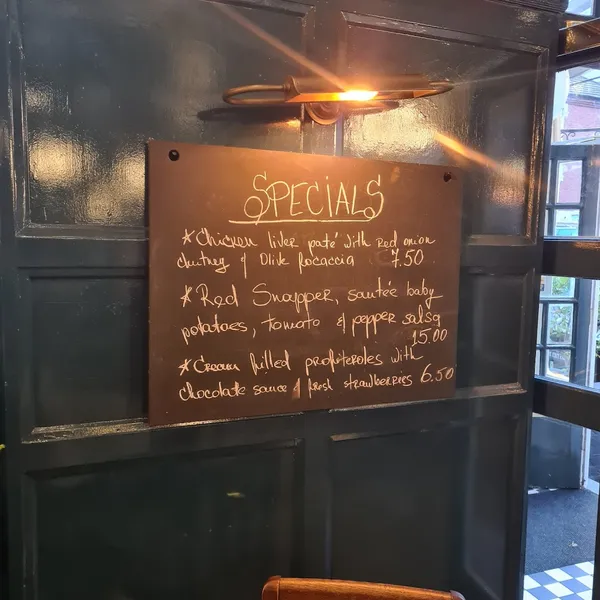 SPECIALS
* Chicken liver paté with red onion
chutney & Olive focaccia 7.50
* Red Snapper, sautée baby
potatoes, tomato & pepper salsa
15.00
* Cream filled profiteroles with
chocolate sauce & fresh strawberries 6.50